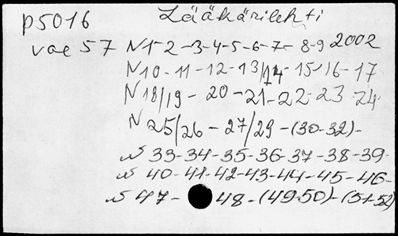 p5016 Lääkärilehti
vol 57 N1-2-3-4-5-6-7-8-9 2002
N10-11-12-13/14-15-16-17
N18/19-20-21-22-23-24
N25/26-27/29-(30-32)-
N33-34-35-36-37-38-39-
N40-41-42-43-44-45-46-
N47-48-(49-50)-(51+52)